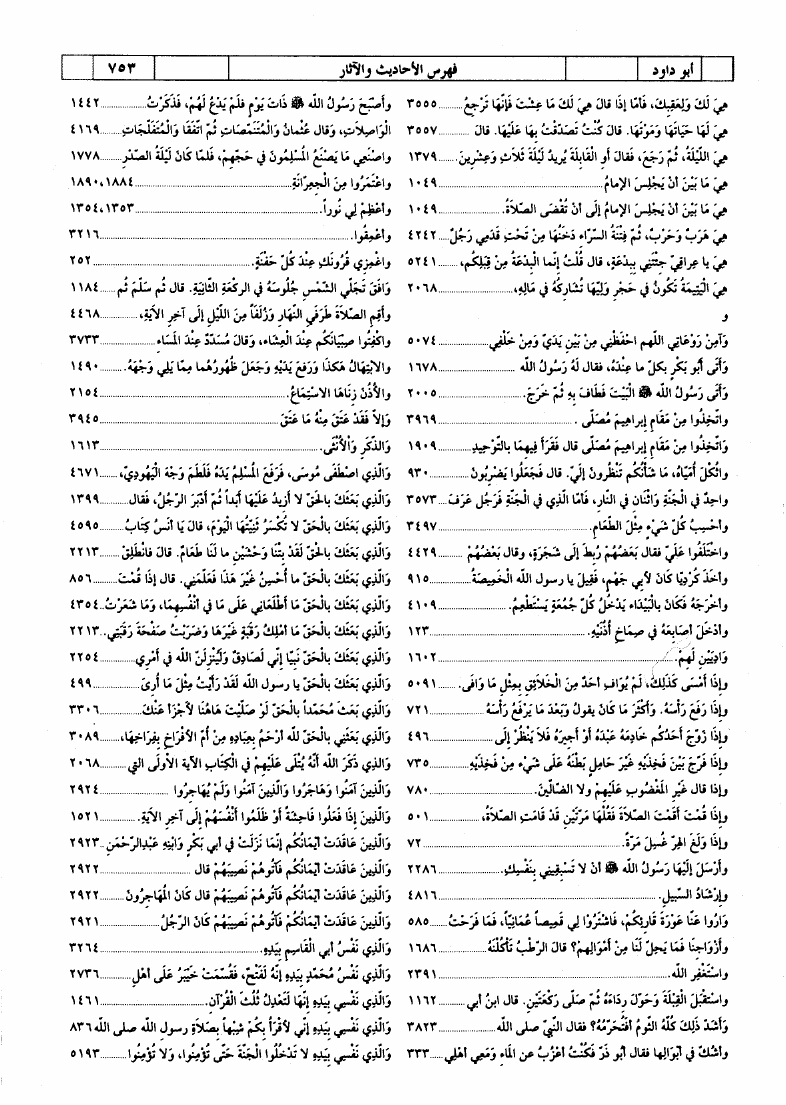 أبو داود
فهرس الأحاديث والآثار
٧٥٣
هِيَ لَكَ وَلِعَقِبِكَ، فَأَمَّا إِذَا قالَ هِيَ لَكَ مَا عِشْتَ فَإِنَّهَا تَرْجِعُ .......... ٣٥٥٥
هِيَ لَهَا حَيَاتَهَا وَمَوْتَهَا. قالَ كُنْتُ تَصَدَّقْتُ بِهَا عَلَيْهَا. قالَ ........ ٣٥٥٧
هِيَ اللَّيْلَةُ، ثُمَّ رَجَعَ، فَقالَ أَوِ الْقَابِلَةُ يُرِيدُ لَيْلَةَ ثَلَاثٍ وَعِشْرِينَ. .......... ١٣٧٩
هِيَ مَا بَيْنَ أَنْ يَجْلِسَ الإِمامُ .......... ١٠٤٩
هِيَ مَا بَيْنَ أَنْ يَجْلِسَ الإِمامُ إِلَى أَنْ تُقْضَى الصَّلاَةُ. .......... ١٠٤٩
هِيَ هَرَبٌ وَحَرْبٌ، ثُمَّ فِتْنَةُ السَّرَّاءِ دَخَنُهَا مِنْ تَحْتِ قَدَمَيْ رَجُلٍ ....... ٤٢٤٢
هِيَ يا عِراقيّ جِئْتَنِي بِبِدْعَةٍ، قال قُلْتُ إِنَّمَا الْبِدْعَةُ مِنْ قِبَلِكُم، ........ ٥٢٤١
هِيَ الْيَتِيمَةُ تَكُونُ في حَجْرِ وَلِيِّهَا تُشَارِكُهُ في مَالِهِ، .......... ٢٠٦٨
و
وَآمِنْ رَوْعَاتِي اللهم احْفَظْنِي مِنْ بَيْنِ يَدَيَّ وَمِنْ خَلْفِي .......... ٥٠٧٤
وَأَتَى أَبُو بَكْرٍ بكلّ ما عِنْدَهُ، فقالَ لَهُ رَسُولُ الله .......... ١٦٧٨
وَأَتَى رَسُولُ الله ﷺ الْبَيْتَ فَطَافَ بِهِ ثُمَّ خَرَجَ. .......... ٢٠٠٥
وَاتَّخِذُوا مِنْ مَقَامِ إِبراهِيمَ مُصَلًّى . .......... ٣٩٦٩
وَاتَّخِذُوا مِنْ مَقَامِ إِبراهِيمَ مُصَلًّى قال فَقَرَأَ فِيهِمَا بِالتَّوْحِيدِ .......... ١٩٠٩
وَاثُكْلَ أُمَيَّاهُ، مَا شَأْنُكُم تَنْظُرُونَ إِلَيّ. قال فَجَعَلُوا يَضْرِبُونَ .......... ٩٣٠
واحِدٌ في الْجَنَّةِ وَاثْنَانِ في النارِ، فَأَمَّا الَّذِي في الْجَنَّةِ فَرَجُلٌ عَرَفَ .... ٣٥٧٣
وَأَحْسِبُ كُلّ شَيْءٍ مِثْلَ الطَّعَامِ. .......... ٣٤٩٧
وَاخْتَلَفُوا عَلَيّ فقال بَعْضُهُمْ رُبِطَ إِلَى شَجَرَةٍ، وقال بَعْضُهُمْ ......... ٤٤٢٩
وأَخَذَ كُرْدِيًّا كَانَ لأَبِي جَهْمٍ، فَقِيلَ يا رسولَ الله الْخَمِيصَةُ .......... ٩١٥
وَأَخْرَجَهُ فَكَانَ بالْبَيْدَاءِ يَدْخُلُ كلّ جُمُعَةٍ يَسْتَطْعِمُ. .......... ٤١٠٩
وأَدْخَلَ أَصابِعَهُ في صِمَاخِ أُذُنَيْهِ. .......... ١٢٣
وَادِيَيْنِ لَهُمْ. .......... ١٦٠٢
وَإِذَا أَمْسَى كَذَلِكَ، لَمْ يُوَافِ أَحَدٌ مِنَ الْخَلاَئِقِ بِمِثْلِ مَا وَافَى. .......... ٥٠٩١
وإِذَا رَفَعَ رَأْسَهُ. وَأَكْثَرَ مَا كانَ يقولُ وَبَعْدَ مَا يَرْفَعُ رَأْسَهُ .......... ٧٢١
وإِذَا زَوَّجَ أَحَدُكُم خَادِمَهُ عَبْدَهُ أَوْ أَجِيرَهُ فَلاَ يَنْظُرُ إِلَى .......... ٤٩٦
وَإِذا فَرَّجَ بَيْنَ فَخِذَيْهِ غَيْرَ حَامِلٍ بَطْنَهُ عَلَى شَيْءٍ مِنْ فَخِذَيْهِ .......... ٧٣٥
وإذا قال غَيْرِ المَغْضُوبِ عَلَيْهِمْ ولا الضالِّينَ. .......... ٧٨٠
وإِذَا قُمْتَ أَقَمْتَ الصَّلاَةَ فَقُلْهَا مَرَّتَيْنِ قَدْ قامَتِ الصَّلاَةُ، .......... ٥٠١
وإِذَا وَلَغَ الْهِرّ غُسِلَ مَرَّةً. .......... ٧٢
وَأَرْسَلَ إِلَيْهَا رَسُولُ الله ﷺ أَنْ لا تَسْبِقِينِي بِنَفْسِكِ. .......... ٢٢٨٦
وإِرْشَادُ السَّبِيلِ. .......... ٤٨١٦
وَارُوا عَنَّا عَوْرَةَ قارِئِكُم، فَاشْتَرَوْا لِي قَمِيصاً عُمَانِيّاً، فَمَا فَرِحْتُ ..... ٥٨٥
وَأَزْوَاجِنَا فَمَا يَحِلّ لَنَا مِنْ أَمْوَالِهِمْ؟ قال الرَّطْبُ تَأْكُلْنَهُ .......... ١٦٨٦
واسْتَغْفِر الله. .......... ٢٣٩١
وَاسْتَقْبَلَ الْقِبْلَةَ وَحَوّلَ رِدَاءَهُ ثُمَّ صَلَّى رَكْعَتَيْنِ. قال ابنُ أبي ....... ١١٦٢
وَأَشَدّ ذَلِكَ كُلّهُ الثُّومُ أَفَتُحَرِّمُهُ؟ فقال النَّبيّ صلى الله .......... ٣٨٢٣
وأشُكّ في أبْوَالِها فقال أبُو ذَرّ فَكُنْتُ أَعْزُبُ عن المَاءِ وَمَعِي أَهْلِي ..... ٣٣٣
وأَصْبَحَ رَسُولُ الله ﷺ ذَاتَ يَوْمٍ فَلَمْ يَدْعُ لَهُمْ، فَذَكَرْتُ .......... ١٤٤٢
الْوَاصِلاَتِ، وقال عُثْمانُ وَالْمُتَنَمِّصَاتِ ثُمَّ اتَّفَقَا وَالْمُتَفَلِّجَاتِ ....... ٤١٦٩
وَاصْنَعِي مَا يَصْنَعُ الْمُسْلِمُونَ في حَجِّهِمْ، فَلمَّا كَانَ لَيْلَةُ الصَّدَرِ ....... ١٧٧٨
واعْتَمَرُوا مِنَ الْجِعِرَّانَةِ .......... ١٨٨٤، ١٨٩٠
وأَعْظِمْ لِي نُوراً. .......... ١٣٥٣، ١٣٥٤
وأَعْمِقُوا. .......... ٣٢١٦
وَاغْمِزِي قُرُونَكِ عِنْدَ كُلّ حَفْنَةٍ. .......... ٢٥٢
وَافَقَ تَجَلِّي الشَّمْسِ جُلُوسَهُ في الركْعَةِ الثَّانِيَةِ. قال ثُم سَلّمَ ثُم ..... ١١٨٤
وَأَقِمِ الصَّلاَةَ طَرَفَيِ النَّهَارِ وَزُلَفاً مِنَ اللَّيْلِ إِلَى آخِرِ الآيَةِ، ......... ٤٤٦٨
وَاكْفِتُوا صِبْيَانَكُم عِنْدَ الْعِشَاءِ، وقَالَ مُسَدَّدٌ عِنْدَ الْمَسَاءِ .......... ٣٧٣٣
والابْتِهَالُ هَكذَا وَرَفَعَ يَدَيْهِ وَجَعَلَ ظُهُورَهُما مِمَّا يَلِي وَجْهَهُ. ........ ١٤٩٠
والأُذُنُ زِنَاهَا الاسْتِمَاعُ. .......... ٢١٥٤
وَإِلاَّ فَقَدْ عَتَقَ مِنْهُ مَا عَتَقَ .......... ٣٩٤٥
وَالذَّكَرِ وَالأُنْثَى. .......... ١٦١٣
وَالَّذِي اصْطَفَى مُوسَى، فَرَفَعَ الْمُسْلِمُ يَدَهُ فَلَطَمَ وَجْهَ الْيَهُودِيّ، ...... ٤٦٧١
وَالَّذِي بَعَثَكَ بِالحَقّ لا أَزِيدُ عَلَيْهَا أَبَداً ثُمَّ أَدْبَرَ الرَّجُلُ، فقال ....... ١٣٩٩
وَالَّذِي بَعَثَكَ بالْحَقّ لا تُكْسَرُ ثَنِيَّتُهَا الْيَوْمَ، قالَ يَا أَنَسُ كِتَابُ ..... ٤٥٩٥
وَالَّذِي بَعَثَكَ بالحَقّ لَقَدْ بِتْنَا وَحْشَيْنِ ما لَنَا طَعَامٌ. قال فانْطَلِقْ ..... ٢٢١٣
وَالَّذِي بَعَثَكَ بالحَقّ ما أُحْسِنُ غَيْرَ هَذَا فَعَلِّمْنِي. قال إِذَا قُمْتَ ....... ٨٥٦
وَالَّذِي بَعَثَكَ بالْحَقّ مَا أَطْلَعَانِي عَلَى مَا في أَنْفُسِهِمَا، وَمَا شَعَرْتُ. ... ٤٣٥٤
وَالَّذِي بَعَثَكَ بالْحَقّ مَا أَمْلِكُ رَقَبَةً غَيْرَهَا وَضَرَبْتُ صَفْحَةَ رَقَبَتِي. .. ٢٢١٣
وَالَّذِي بَعَثَكَ بالْحَقّ نَبِيّا إِنّي لَصَادِقٌ وَلَيُنْزِلَنّ الله في أَمْرِي ......... ٢٢٥٤
وَالَّذِي بَعَثَكَ بالْحَقّ يا رسولَ الله لَقَدْ رَأَيْتُ مِثْلَ مَا أُرِيَ ......... ٤٩٩
وَالَّذِي بَعَثَ مُحَمَّداً بالْحَقّ لَوْ صَلَّيْتَ هَاهُنَا لأَجْزَأَ عَنْكَ .......... ٣٣٠٦
وَالَّذِي بَعَثَنِي بالْحَقّ لله أَرْحَمُ بِعِبَادِهِ مِنْ أُمّ الأَفْرَاخِ بِفِرَاخِهَا، ....... ٣٠٨٩
والَّذي ذَكَرَ الله أَنَّهُ يُتْلَى عَلَيْهِمْ في الْكِتَابِ الآيةَ الأولَى التي ........ ٢٠٦٨
وَالَّذِينَ آمَنُوا وَهَاجَرُوا وَالَّذِينَ آمَنُوا وَلَمْ يُهَاجِروا .......... ٢٩٢٤
وَالَّذِينَ إِذَا فَعَلُوا فَاحِشَةً أَوْ ظَلَمُوا أَنْفُسَهُمْ إِلَى آخِرِ الآيَةِ. .......... ١٥٢١
وَالَّذِينَ عَاقَدَتْ أَيْمَانُكُم إِنَّمَا نَزَلَتْ في أبي بَكْرٍ وَابْنِهِ عَبْدِالرَّحْمَنِ ... ٢٩٢٣
وَالَّذِينَ عَاقَدَتْ أَيْمَانُكُمْ فَآتُوهُمْ نَصِيبَهُمْ قال .......... ٢٩٢٢
وَالَّذِينَ عَاقَدَتْ أَيْمَانُكُمْ فَآتُوهُمْ نَصِيبَهُمْ قال كَانَ الْمُهَاجِرُونَ ....... ٢٩٢٢
وَالَّذِينَ عَاقَدَتْ أَيْمَانُكُمْ فَآتُوهُمْ نَصِيبَهُمْ كَانَ الرَّجُلُ .......... ٢٩٢١
وَالَّذِي نَفْسُ أبي القَاسِمِ بِيَدِهِ. .......... ٣٢٦٤
وَالَّذِي نَفْسُ مُحَمَّدٍ بِيَدِهِ إِنَّهُ لَفَتْحٌ، فَقُسِّمَتْ خَيْبَرُ عَلَى أَهْلِ ......... ٢٧٣٦
وَالَّذِي نَفْسِي بِيَدِهِ إِنَّهَا لَتَعْدِلُ ثُلُثَ الْقُرْآنِ. .......... ١٤٦١
وَالَّذِي نَفْسِي بِيَدِهِ إِنِّي لأَقْرَبُكُم شَبَهاً بِصَلاَةِ رسولِ الله صلى الله ٨٣٦
وَالَّذِي نَفْسِي بِيَدِهِ لا تَدْخُلُوا الْجَنَّةَ حَتَّى تُؤْمِنُوا، وَلا تُؤْمِنُوا ......... ٥١٩٣